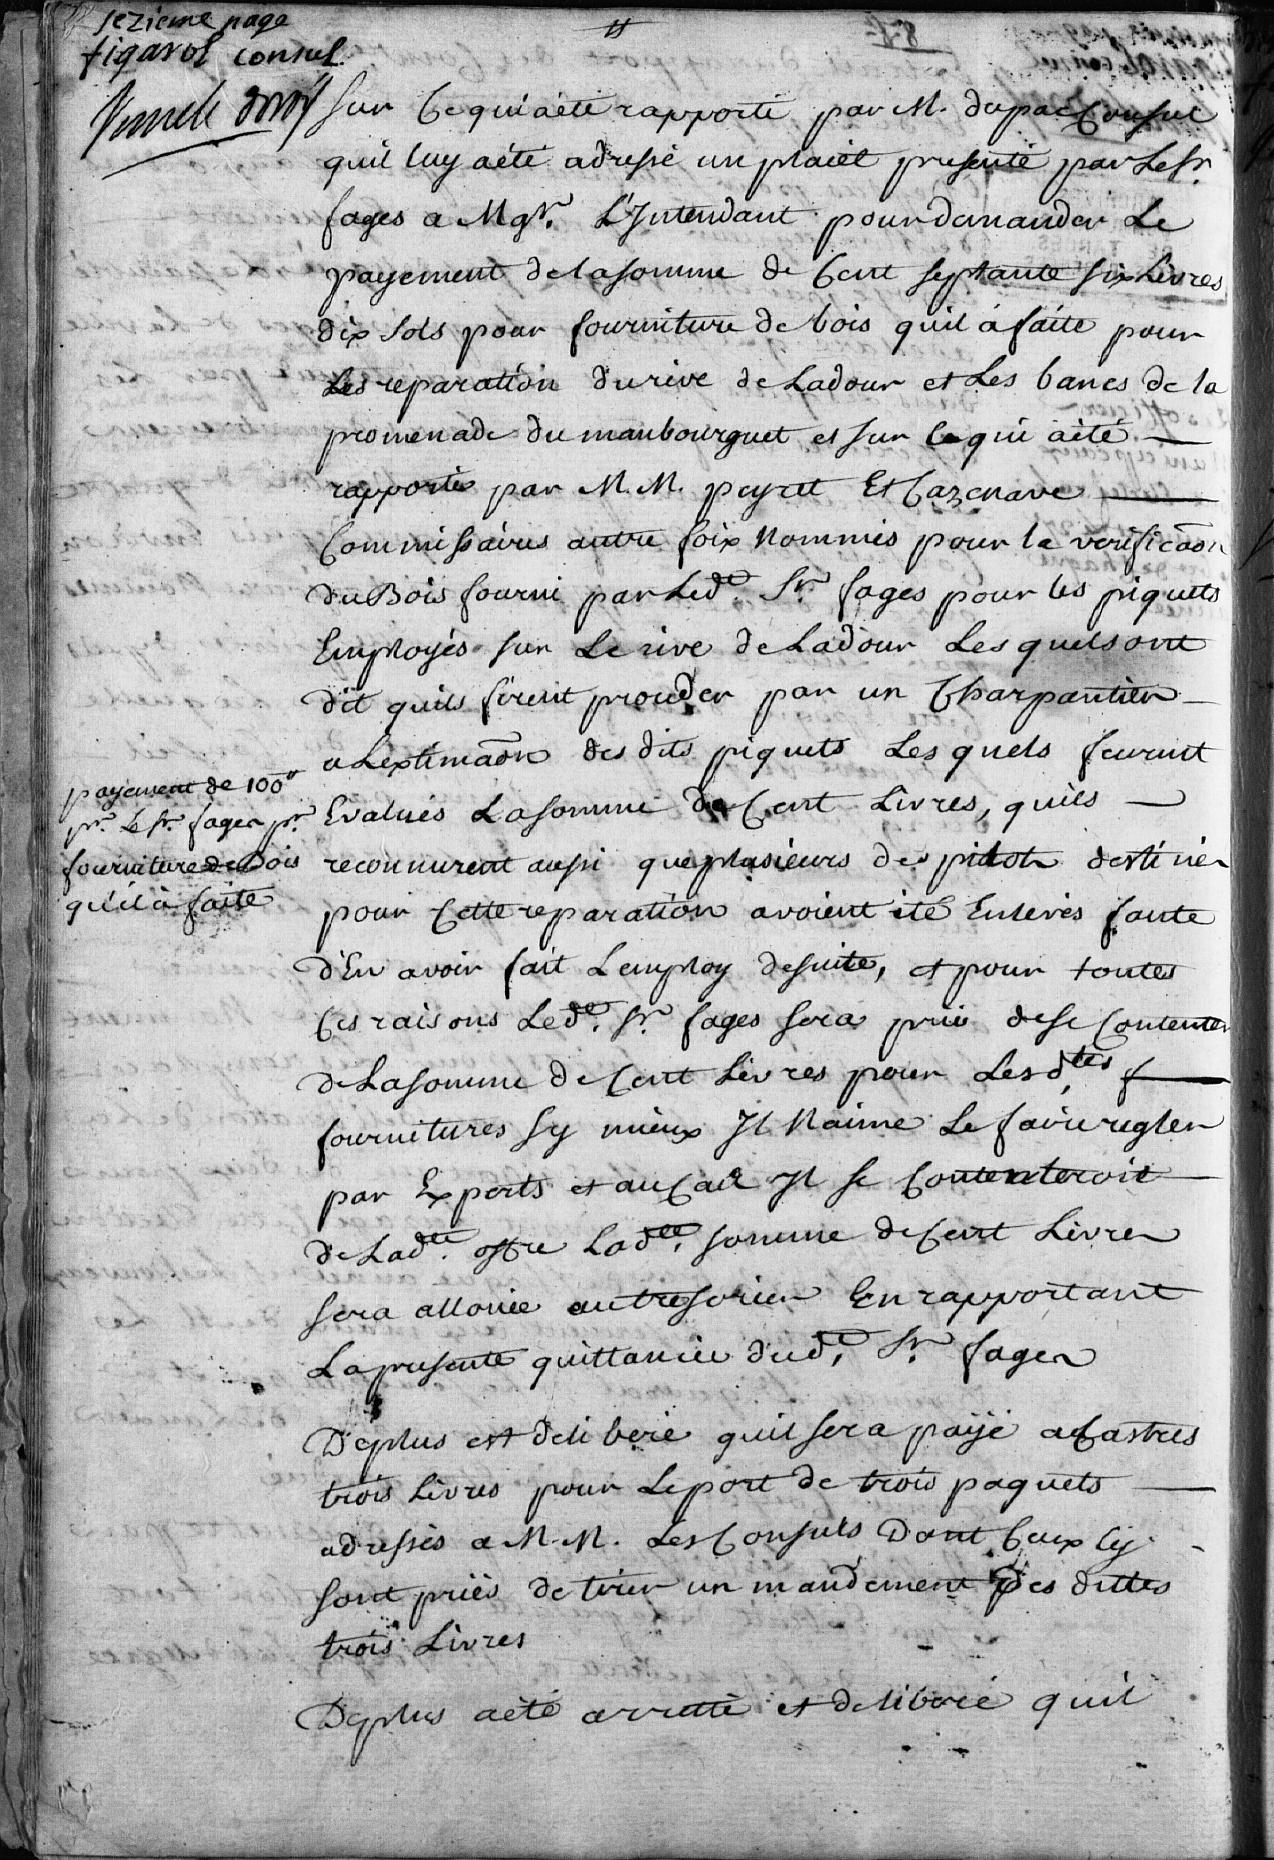 sezieme page
figarol consul
Sur Ce qui aété rapporté par M. dupac Consul
quil luy aété adressé un placet presenté par Le Sr.
fages a Mgr. L'Intendant pour demander Le
payement de la somme de Cent septante six Livres
dix sols pour fourniture de bois quil á faite pour
Les reparation du rive de Ladour et Les bancs de la
promenade du maubourguet et sur Ce qui aété
rapporté par M.M. peyret Et Cazenave
Commissaires autre foix Nommés pour la verificaon
du Bois fourni par Led. Sr. fages pour les piquets
Employés sur Le rive de Ladour Les quels ont
dit quils firent proceder par un Charpantier
a Lextimaon des dits piquets Les quels feurent
payement de 100ll
pr. Le Sr. fages pr.
fourniture de Bois
qu'il à faite
Evalués La somme de Cent Livres, quils
reconnurent aussi que plusieurs des pilots destinés
pour Cette reparation avoient été Enlevés faute
d'En avoir fait Lemploy desuite, et pour toutes
Ces raisons Led. Sr. fages sera prié de se Contenter
de La somme de Cent Livres pour Les dtes f
fournitures sy mieux Il Naime Le faire regler
par Experts et au Cas Il se Contenteroit
de Lad. offre Lad. somme de Cent Livres
sera allouée au tresorier En rapportant
La presente quittancée dud. Sr. fages
De plus est deliberé quil sera payé a Castres
trois Livres pour Le port de trois paquets
adressés a M.M. Les Consuls Dont Ceux Cy
sont priés de tirer un mandement des dittes
trois Livres
De plus aété arretté et deliberé quil